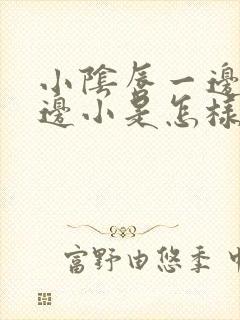 小陰唇一邊
邊小是怎樣
富野由悠季